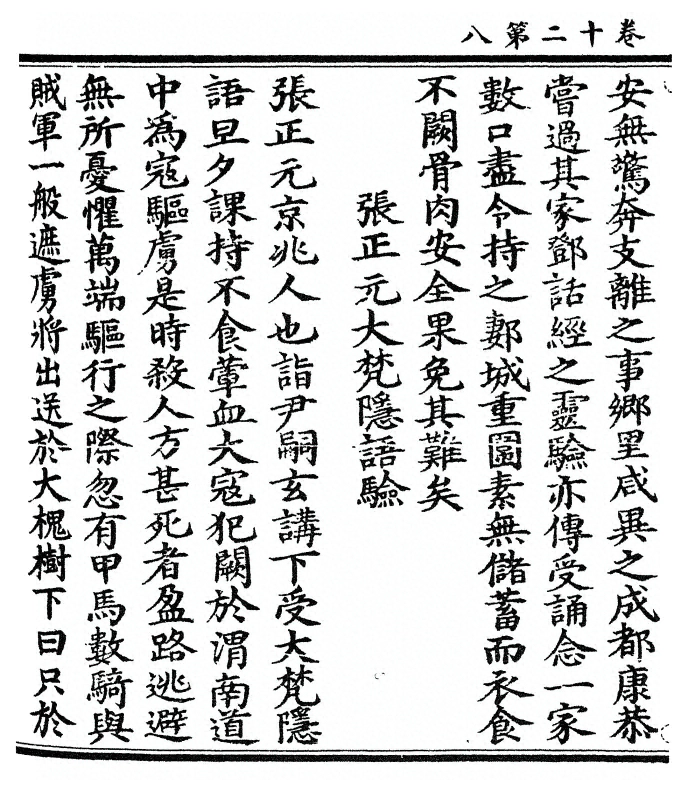 卷十二第八
安無驚奔支離之事鄉里咸異之成都康恭
嘗過其家鄧話經之靈驗亦傳受誦念一家
數口盡令持之鄴城重圍素無儲蓄而衣食
不闕骨肉安全果免其難矣
張正元大梵隱語驗
張正元京兆人也詣尹嗣玄講下受大梵隱
語旦夕課持不食葷血大寇犯闕於渭南道
中為寇驅虜是時殺人方甚死者盈路逃避
無所憂懼萬端驅行之際忽有甲馬數騎與
賊軍一般遮虜將出送於大槐樹下曰只於